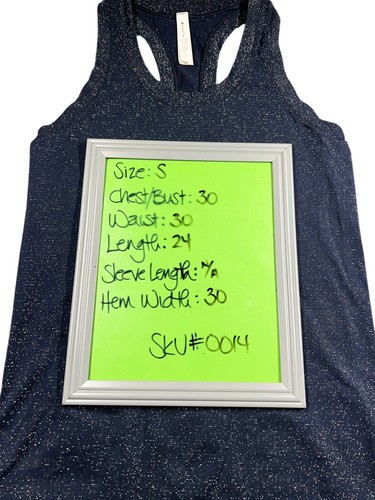 Size: S
Chest/Bust: 30
Waist: 30
Length: 24
Sleeve Length: N/A
Hem Width: 30
SKU#:0014